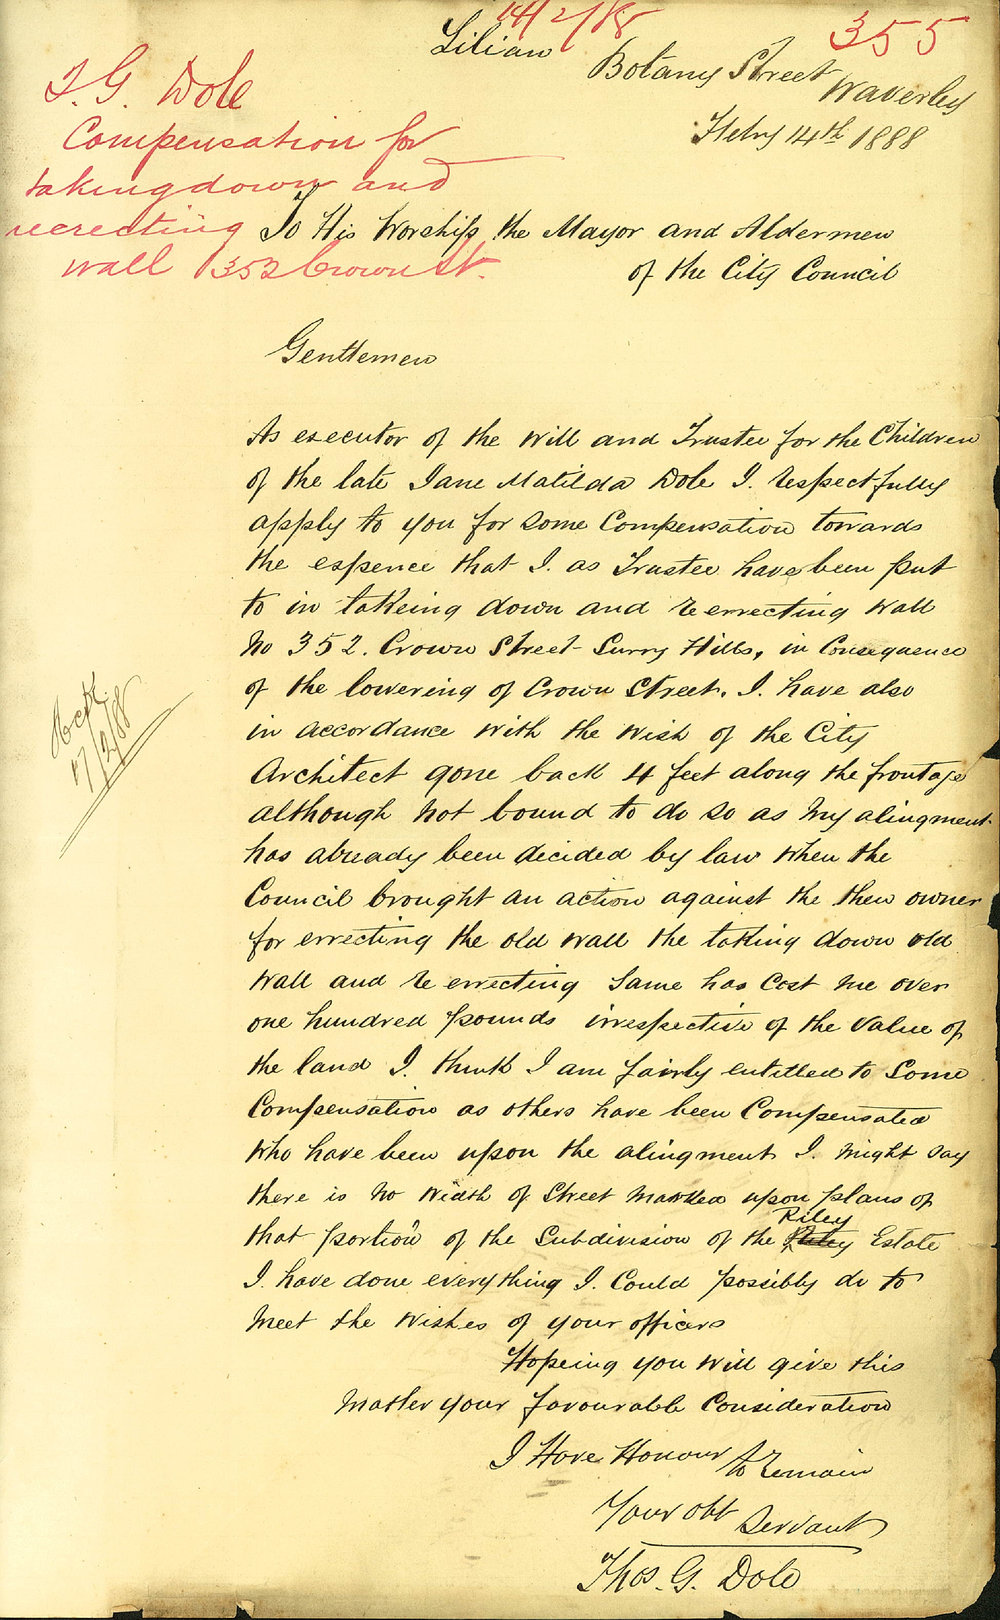 14/2/88
355
Lilian Botany Street
Waverley
Feby 14th 1888
T. G. Dole
Compensation for
taking down and
reerecting
wall 352 Crown St.
To His Worship the Mayor and Aldermen
of the City Council
Gentlemen
As executor of the will and Trustee for the Children
of the late Jane Matilda Dole I. respectfully
apply to you for some Compensation towards
the expence that I. as Trustee have been put
to in takeing down and re errecting wall
No 352. Crown Street Surry Hills, in Consequence
of the lowering of Crown Street. I. have also
in accordance with the wish of the City
Architect gone back 4 feet along the frontage
although not bound to do so as my alingment
has already been decided by law when the
Council brought an action against the then owner
for errecting the old wall the taking down old
wall and re errecting same has cost me over
one hundred pounds irrespective of the value of
the land I. think I am fairly entitled to Some
Compensation as others have been Compensated
who have been upon the alingment I. might say
there is no width of Street marked upon plans of
that portion of the Subdivision of the Riley Estate
I. have done everything I. Could possibly do to
meet the wishes of your officers
Hopeing you will give this
matter your favourable Consideration
I Have Honour to remain
Your obt Servant
Thos. G. Dole
Ackd.
17/2/88